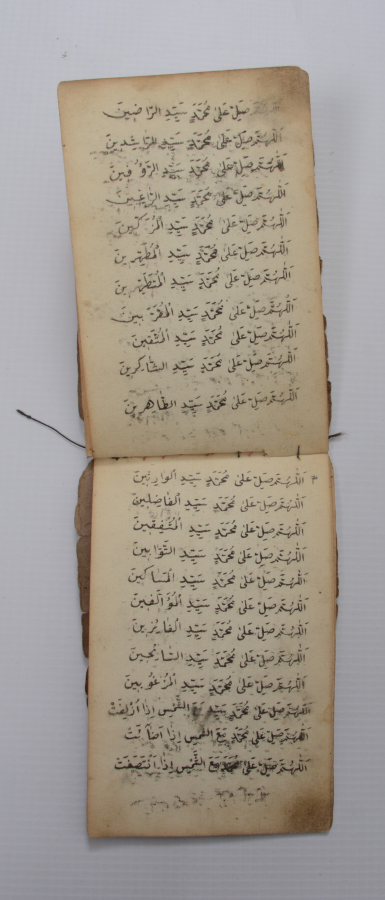 اَللّٰهُمَّ صَلِّ عَلىٰ مُحَمَّدٍ سَيِّدِ الرَّاضِينَ
اَللّٰهُمَّ صَلِّ عَلىٰ مُحَمَّدٍ سَيِّدِ المُرْشِدِينَ
اَللّٰهُمَّ صَلِّ عَلىٰ مُحَمَّدٍ سَيِّدِ الرَّؤُفِينَ
اَللّٰهُمَّ صَلِّ عَلىٰ مُحَمَّدٍ سَيِّدِ
اَللّٰهُمَّ صَلِّ عَلىٰ مُحَمَّدٍ سَيِّدِ
اَللّٰهُمَّ صَلِّ عَلىٰ مُحَمَّدٍ سَيِّدِ الْمُطَهَّرِينَ
اَللّٰهُمَّ صَلِّ عَلىٰ مُحَمَّدٍ سَيِّدِ
اَللّٰهُمَّ صَلِّ عَلىٰ مُحَمَّدٍ سَيِّدِ الْمُقَرَّبِينَ
اَللّٰهُمَّ صَلِّ عَلىٰ مُحَمَّدٍ سَيِّدِ الْمُتَّقِينَ
اَللّٰهُمَّ صَلِّ عَلىٰ مُحَمَّدٍ سَيِّدِ الشَّاكِرِينَ
اَللّٰهُمَّ صَلِّ عَلىٰ مُحَمَّدٍ سَيِّدِ الطَّاهِرِينَ
اَللّٰهُمَّ صَلِّ عَلىٰ مُحَمَّدٍ سَيِّدِ الْوَارِثِينَ
اَللّٰهُمَّ صَلِّ عَلىٰ مُحَمَّدٍ سَيِّدِ الْفَاضِلِينَ
اَللّٰهُمَّ صَلِّ عَلىٰ مُحَمَّدٍ سَيِّدِ الْمُشْفِقِينَ
اَللّٰهُمَّ صَلِّ عَلىٰ مُحَمَّدٍ سَيِّدِ التَّوَّابِينَ
اَللّٰهُمَّ صَلِّ عَلىٰ مُحَمَّدٍ سَيِّدِ الْمَسَاكِينَ
اَللّٰهُمَّ صَلِّ عَلىٰ مُحَمَّدٍ سَيِّدِ الْمُؤَالِفِينَ
اَللّٰهُمَّ صَلِّ عَلىٰ مُحَمَّدٍ سَيِّدِ الْفَائِزِينَ
اَللّٰهُمَّ صَلِّ عَلىٰ مُحَمَّدٍ سَيِّدِ السَّائِحِينَ
اَللّٰهُمَّ صَلِّ عَلىٰ مُحَمَّدٍ سَيِّدِ الْمَرْغُوبِينَ
اَللّٰهُمَّ صَلِّ عَلىٰ مُحَمَّدٍ مَعَ الشَّمْسِ اِذَا اُزْلِفَتْ
اَللّٰهُمَّ صَلِّ عَلىٰ مُحَمَّدٍ مَعَ الشَّمْسِ اِذَا اَضَاءَتْ
اَللّٰهُمَّ صَلِّ عَلىٰ مُحَمَّدٍ مَعَ الشَّمْسِ اِذَا انْتَصَفَتْ